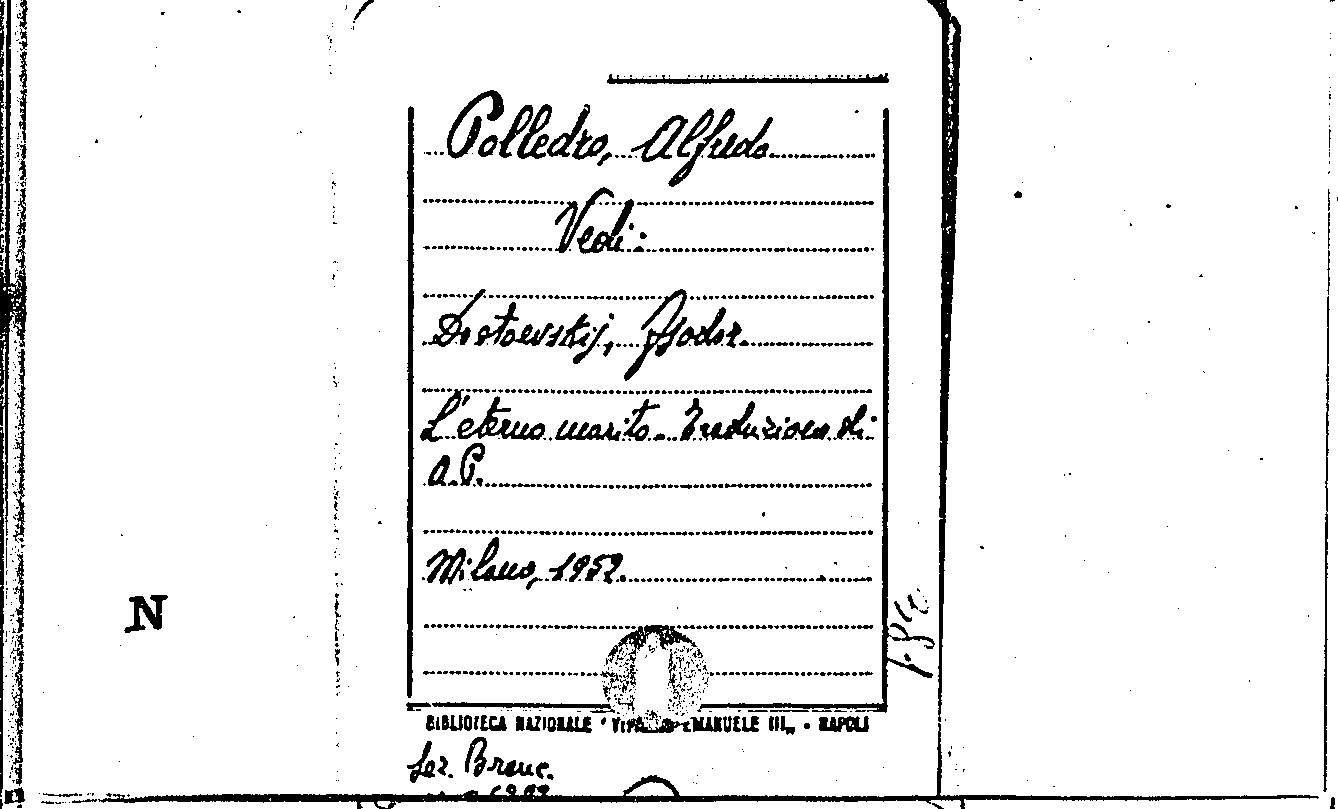 Polledro, Alfredo
Vedi:
Dostoevskij, Fjodor.
L'eterno marito. Traduzione di
A.P.
Milano, 1952.
N
BIBLIOTECA NAZIONALE " EMANUELE III„ - NAPOLI
Sez. Branc.